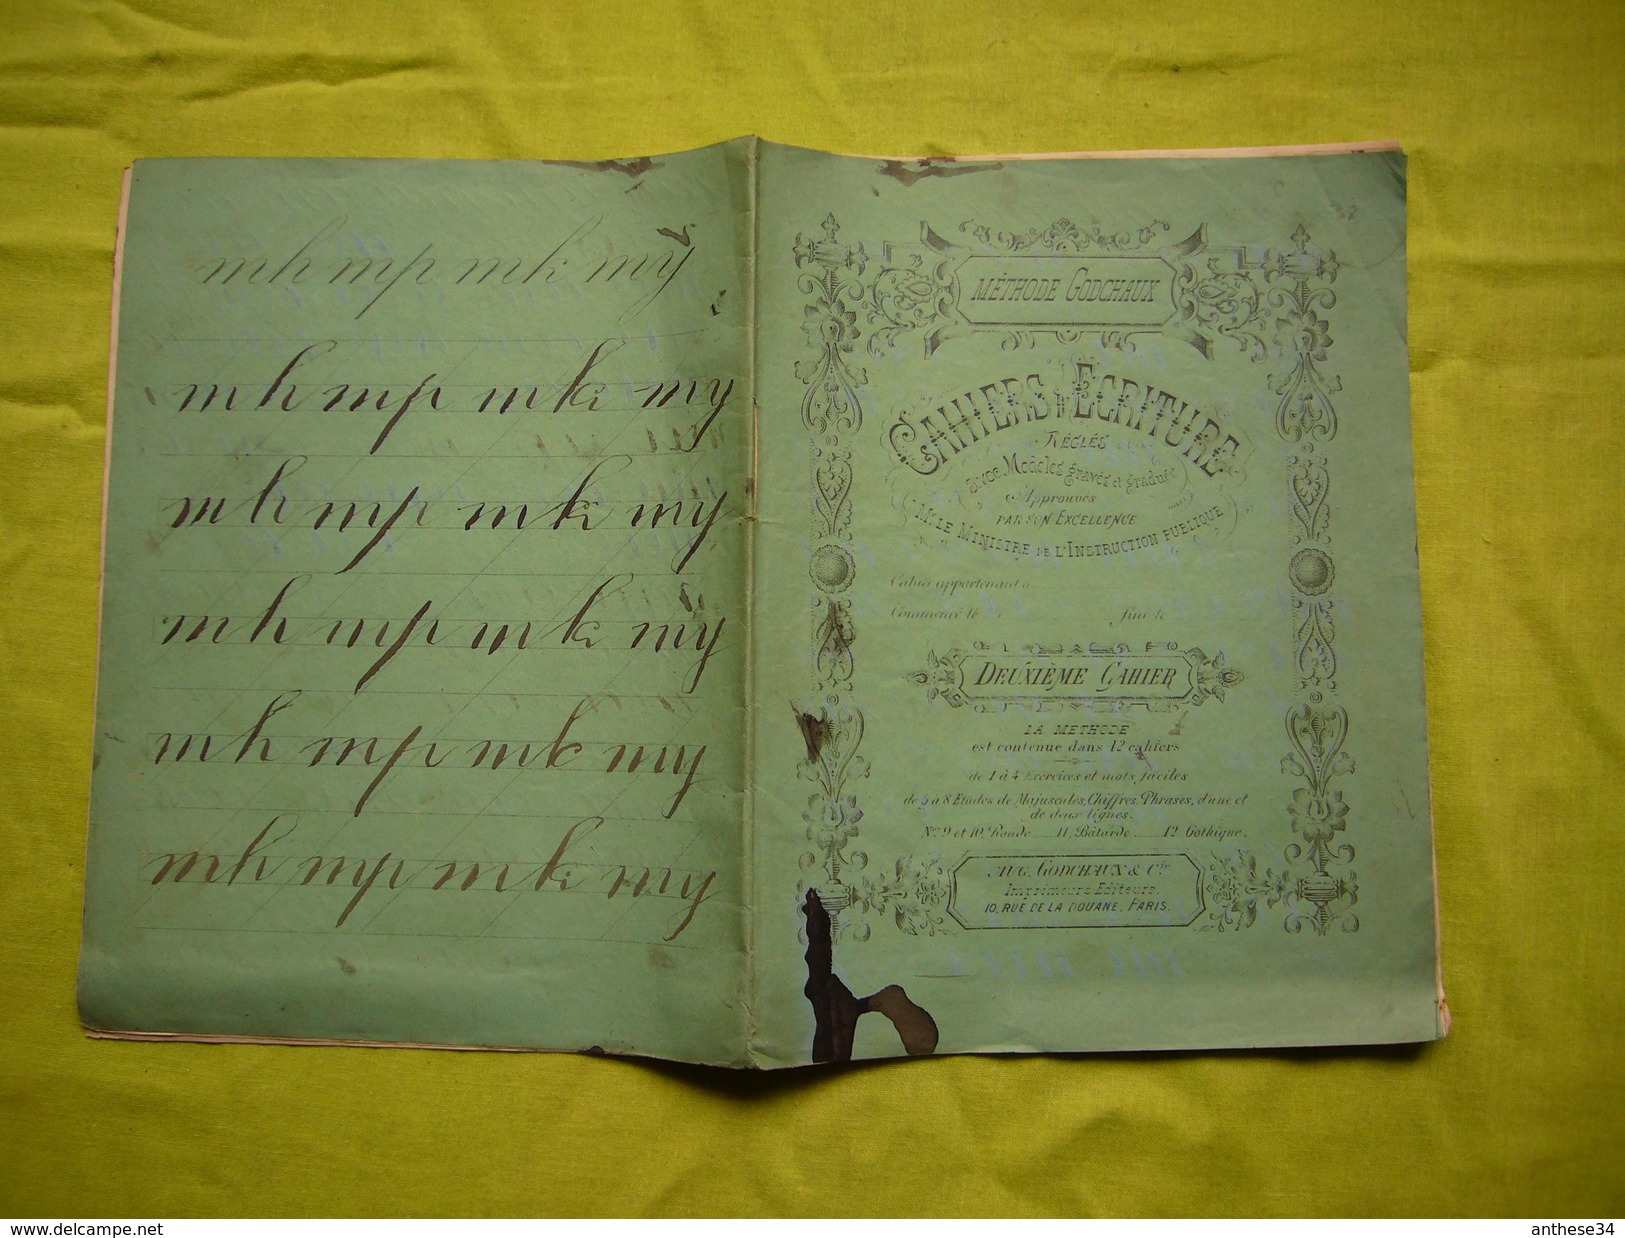 mh mp mk my
mh mp mk my
mh mp mk my
mh mp mk my
mh mp mk my
mh mp mk my
38
MÉTHODE GODCHAUX
CAHIERS D'ÉCRITURE
RÉGLÉS
avec Modèles gravés et gradués
Approuvés
PAR SON EXCELLENCE
Mr LE MINISTRE DE L'INSTRUCTION PUBLIQUE
Cahier appartenant à
Commencé le fini le
DEUXIÈME CAHIER
LA METHODE
est contenue dans 12 cahiers
de 1 à 4 Exercices et mots faciles
de 5 à 8 Etudes de Majuscules, Chiffres, Phrases, d'une et
de deux lignes.
Nos 9 et 10, Ronde 11, Bâtarde 12 Gothique.
AUG. GODCHAUX & Cie
Imprimeurs Editeurs,
10, RUE DE LA DOUANE, PARIS.
www.delcampe.net
anthese34